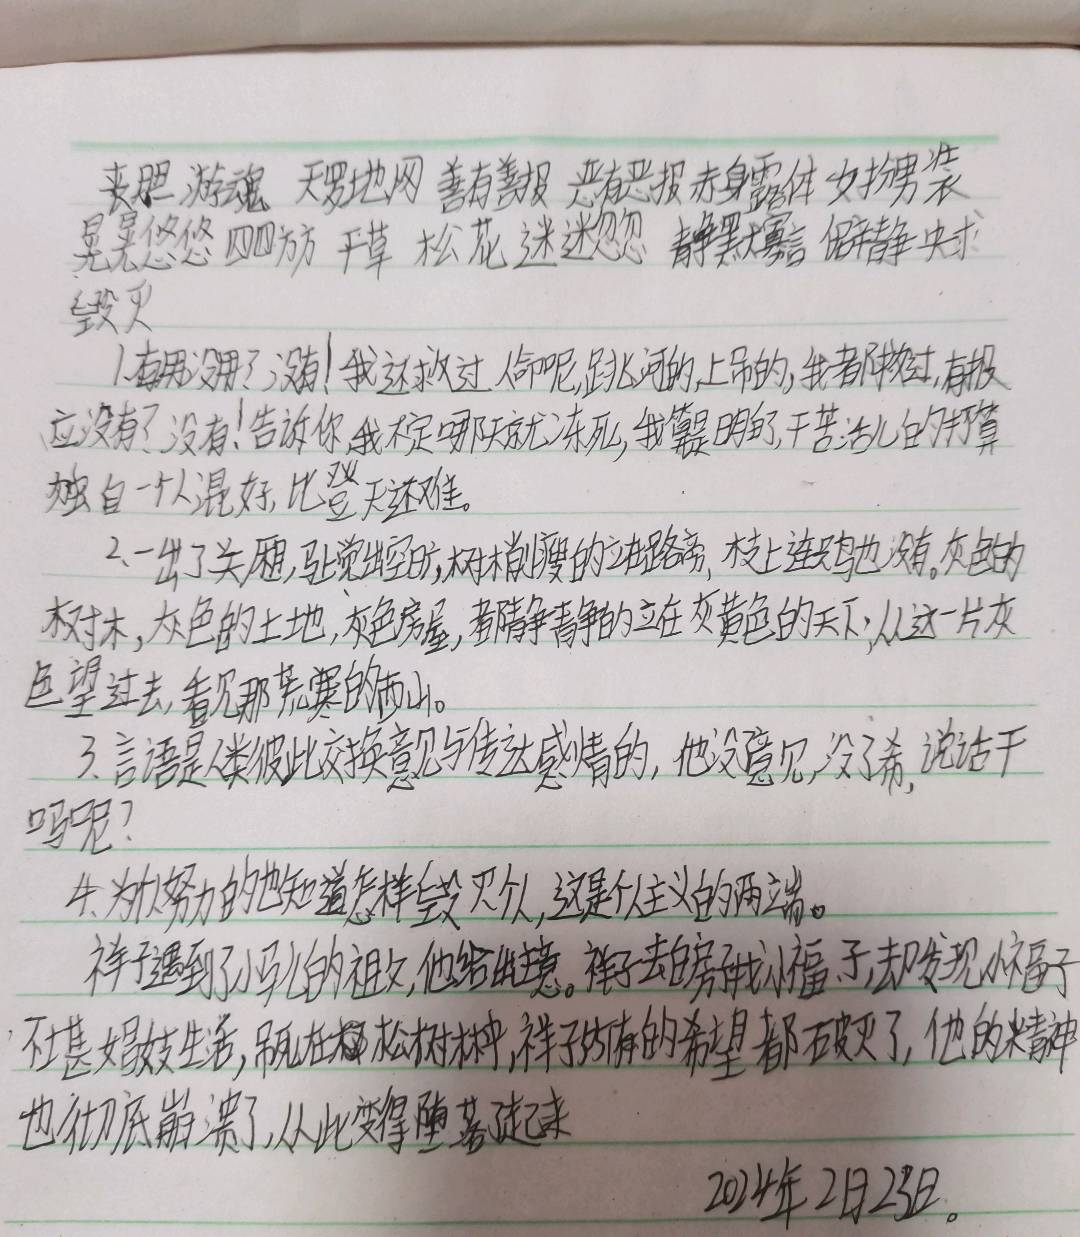 丧胆 游魂 天罗地网 善有善报 恶有恶报 赤身露体 女扮男装
晃晃悠悠 四四方方 干草 松花 迷迷忽忽 静默寡言 僻静 央求
毁灭
1.有用没用?没有!我还救过人命呢,跳河的,上吊的,我都救过,有报
应没有?没有!告诉你,我不定哪天就冻死,我算是明白了,干苦活儿的打算
独自一个人混好,比登天还难。
2.一出了关厢,马上觉出空旷,树木削瘦的立在路旁,枝上连只鸟也没有。灰色的
树木,灰色的土地,灰色房屋,都静静的立在灰黄色的天下;从这一片灰
色望过去,看见那荒寒的西山。
3.言语是人类彼此交换意见与传达感情的,他没意见,没了希,说话干
吗呢?
4.为个人努力的也知道怎样毁灭个人,这是个人主义的两端。
祥子遇到了小马儿的祖父,他给出主意。祥子去白房子找小福子,却发现小福子
不堪娼妓生活,吊死在松树林中,祥子所有的希望都破灭了,他的精神
也彻底崩溃了,从此变得堕落了起来
2024年2月23日。